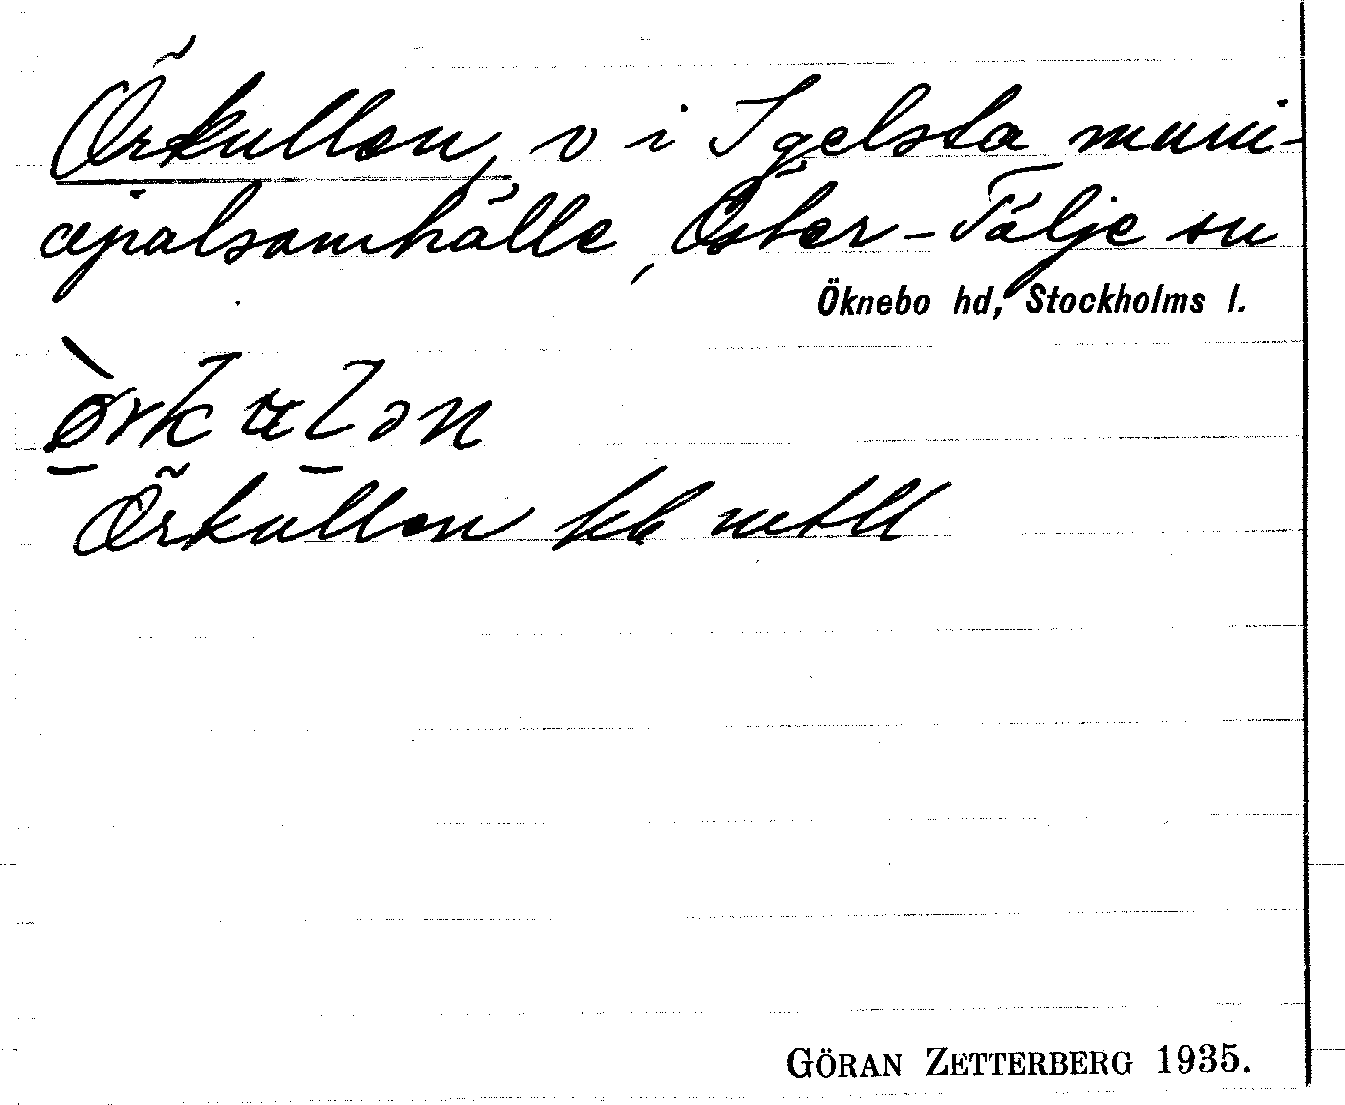 Örkullen, v i Igelsta muni-
cipalsamhälle, Öster-Tälje sn
Öknebo hd, Stockholms l.
Örkullen
GÖRAN ZETTERBERG 1935.